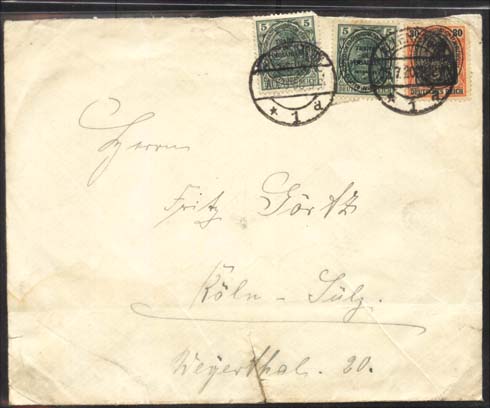 5 5
5 5
30 30
DEUTSCHES REICH
* 1 a
* 1 a
7.20
Herrn
Fritz Görtz
Köln - Sülz.
Weyerthal. 20.